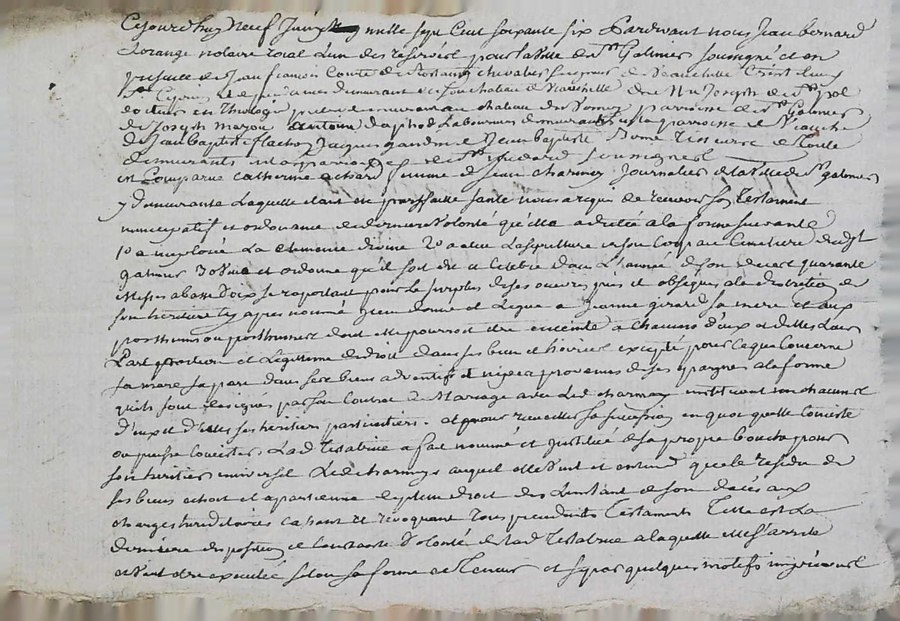 Cejourdhuy Neuf Juin mille sept Cent soixante six Pardevant nous Jean bernard
notaire roial L'un des réservés pour la Ville de St Galmier soussigné et en
presence de Jean francois Comte de chevalier seigneur de Veauchette
St Ciprien et demeurant en son chateau de Veauchette de Mre Joseph de St pol
docteur en Theologie pretre demeurant au chateau de parroisse de St Galmier
de Joseph mazou antoine Laboureur demeurant en la parroisse de Veauche
de Jean baptiste flachon Jacques gaudin et Jean baptiste
demeurants en la parroisse de St medard soussignes
est Comparue Catherine achard femme de Jean charmey Journalier de la Ville de St galmier
y demeurante Laquelle etant en parfaitte santé nous a requis de recevoir son Testament
nuncupatif et ordonnance de derniere Volonté qu'elle a dictée a la forme suivante
1o a imploré La clemence divine 2o a elue La sepulture en son Commun Cimetiere dudt St
galmier 3o Veut et ordonne qu'il soit dit et Celebré dans L'année de son decet quarante
Messes a basse Voix se raportant pour Le surplus de ses oeuvres pies et obseques a la discretion de
son heritier cy apres nommé Item donne et Legue a Jeanne girard sa mere et aux
posthumes ou posthumes dont elle pourroit etre enceinte a chacuns d'eux et d'elles Leur
part portion et Legitime de droit dans ses biens et hoirie excepté pour ce qui Concerne
sa mere sa part dans ses biens adventifs et provenus de ses epargnes a la forme
qu'ils sont designés par son Contrat de Mariage avec Led charmey instituant un chacun
d'eux et d'elles ses heritiers particuliers. et pour recueillir sa succession en quoi quelle Consiste
ou puisse Consister. Lad Testatrice a fait nommé et institué de sa propre bouche pour
son heritier universel Led charmey auquel elle Veut et entend que le residu de
ses biens echoit et apartienne de plein droit des L'instant de son decés aux
charges hereditaires Cassant et revoquant Tous precedents Testaments Telle est La
derniere disposition et Constante Volonté de lad Testatrice a laquelle elle s'arrete
et Veut etre executée selon sa forme et Teneur et si par quelques motifs